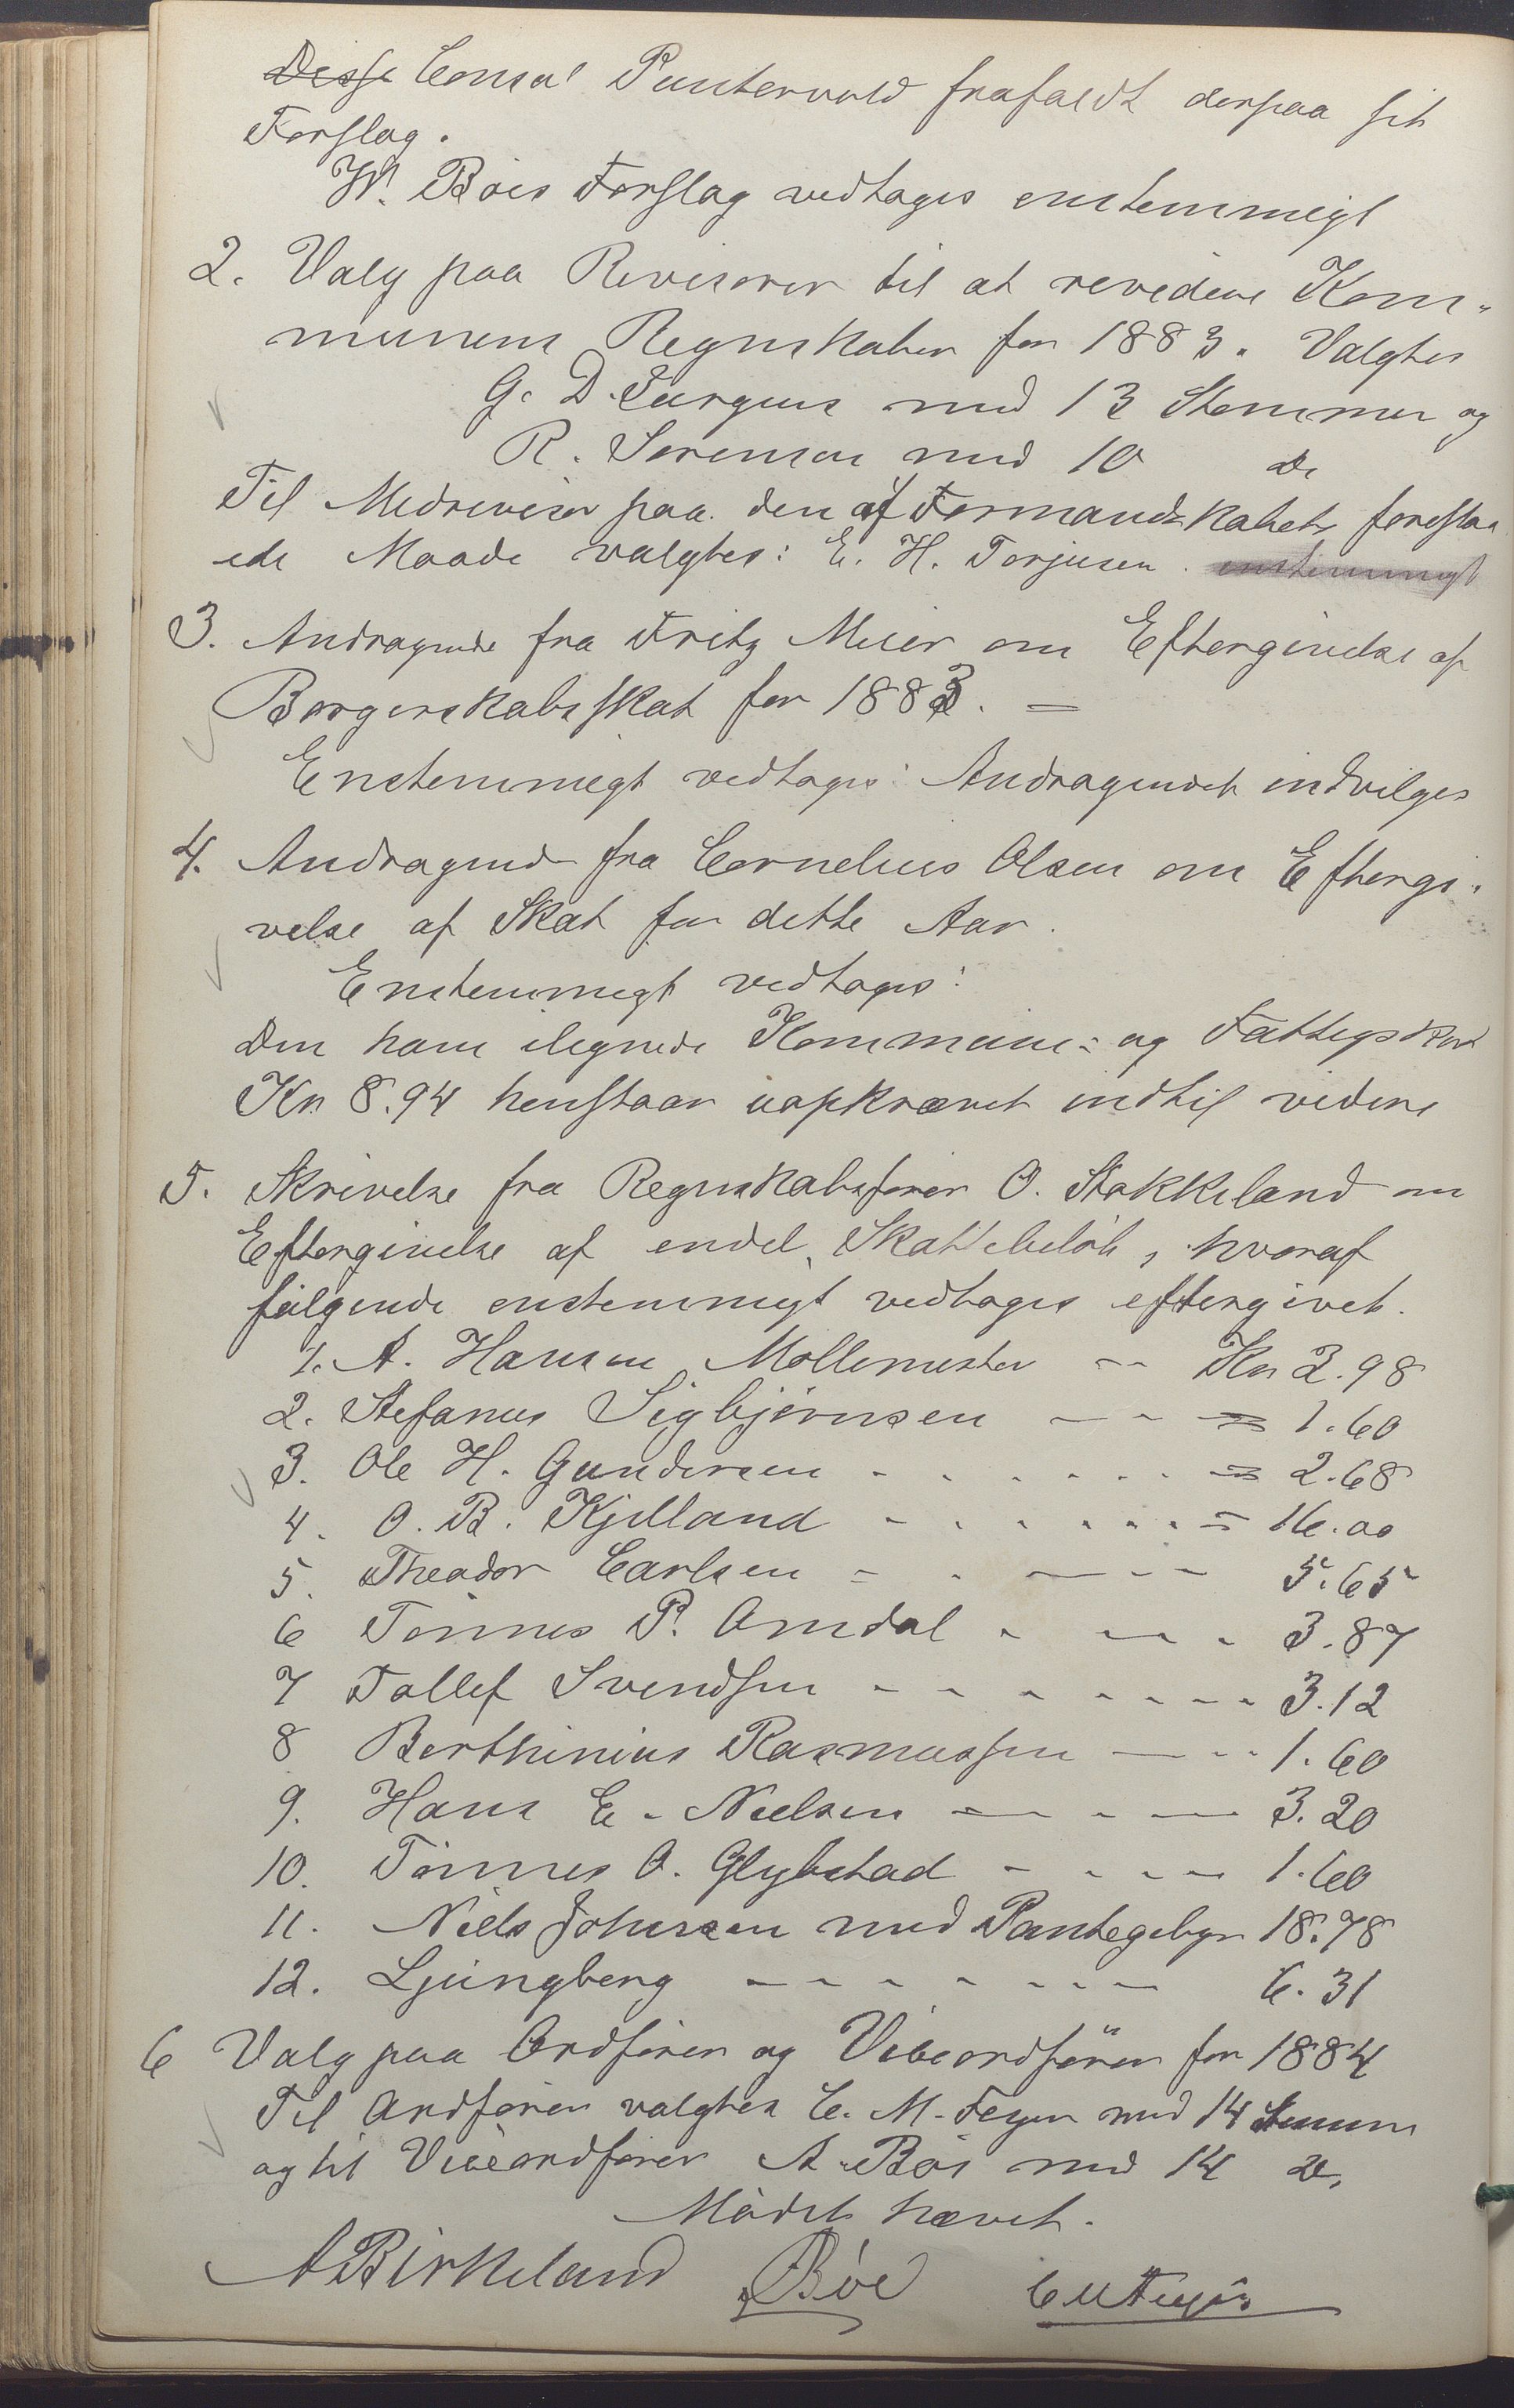 Disse Consul Puntervold frafaldt derpaa sit
Forslag.
W. Böes Forslag vedtages enstemmigt
2. Valg paa Revisorer til at revidere Kom-
munens Regnskaber for 1883. Valgtes
G. D. Jurgens med 13 Stemmer og
R. Sörensen med 10 do
Til Medrevisor paa den af Formandskabet foreslaa
ede Maade valgtes: E. H. Torjusen. enstemmigt
3. Andragende fra Fritz Meier om Eftergivelse af
Borgerskabsskat for 1883. —
Enstemmigt vedtages: Andragendet indvilges
4. Andragende fra Cornelius Olsen om Eftergi-
velse af Skat for dette Aar.
Enstemmigt vedtages:
Den ham ilignede Kommune- og Fattigskat
Kr 8.94 henstaar uopkrævet indtil videre
5. Skrivelse fra Regnskabsförer O. Stakkeland om
Eftergivelse af endel Skattebelöb, hvoraf
fölgende enstemmigt vedtages eftergivet.
1. A. Hansen Möllemester -- Kr 2.98
2. Stefanus Sigbjörnsen - - - 1.60
3. Ole H. Gundersen - - - - - - 2.68
4. O. B. Kjelland - - - - - - 16.00
5. Theodor Carlsen - - - - - 5.65
6 Tönnes P. Omdal - - - - 3.87
7 Tollef Svendsen - - - - - - - - 3.12
8 Berthinius Rasmussen - - - 1.60
9. Hans E. Nielsen - - - 3.20
10. Tönnes O. Glybstad - - - - 1.60
11. Niels Johnsen med Pantegebyr 18.78
12. Ljungberg - - - - - - - 6.31
6 Valg paa Ordförer og Viceordförer for 1884
Til Ordförer valgtes C. M. Feyer med 14 Stemmer
og til Viceordförer A. Böe med 14 do,
Mödet hævet.
A Birkeland Böe C M Feyer